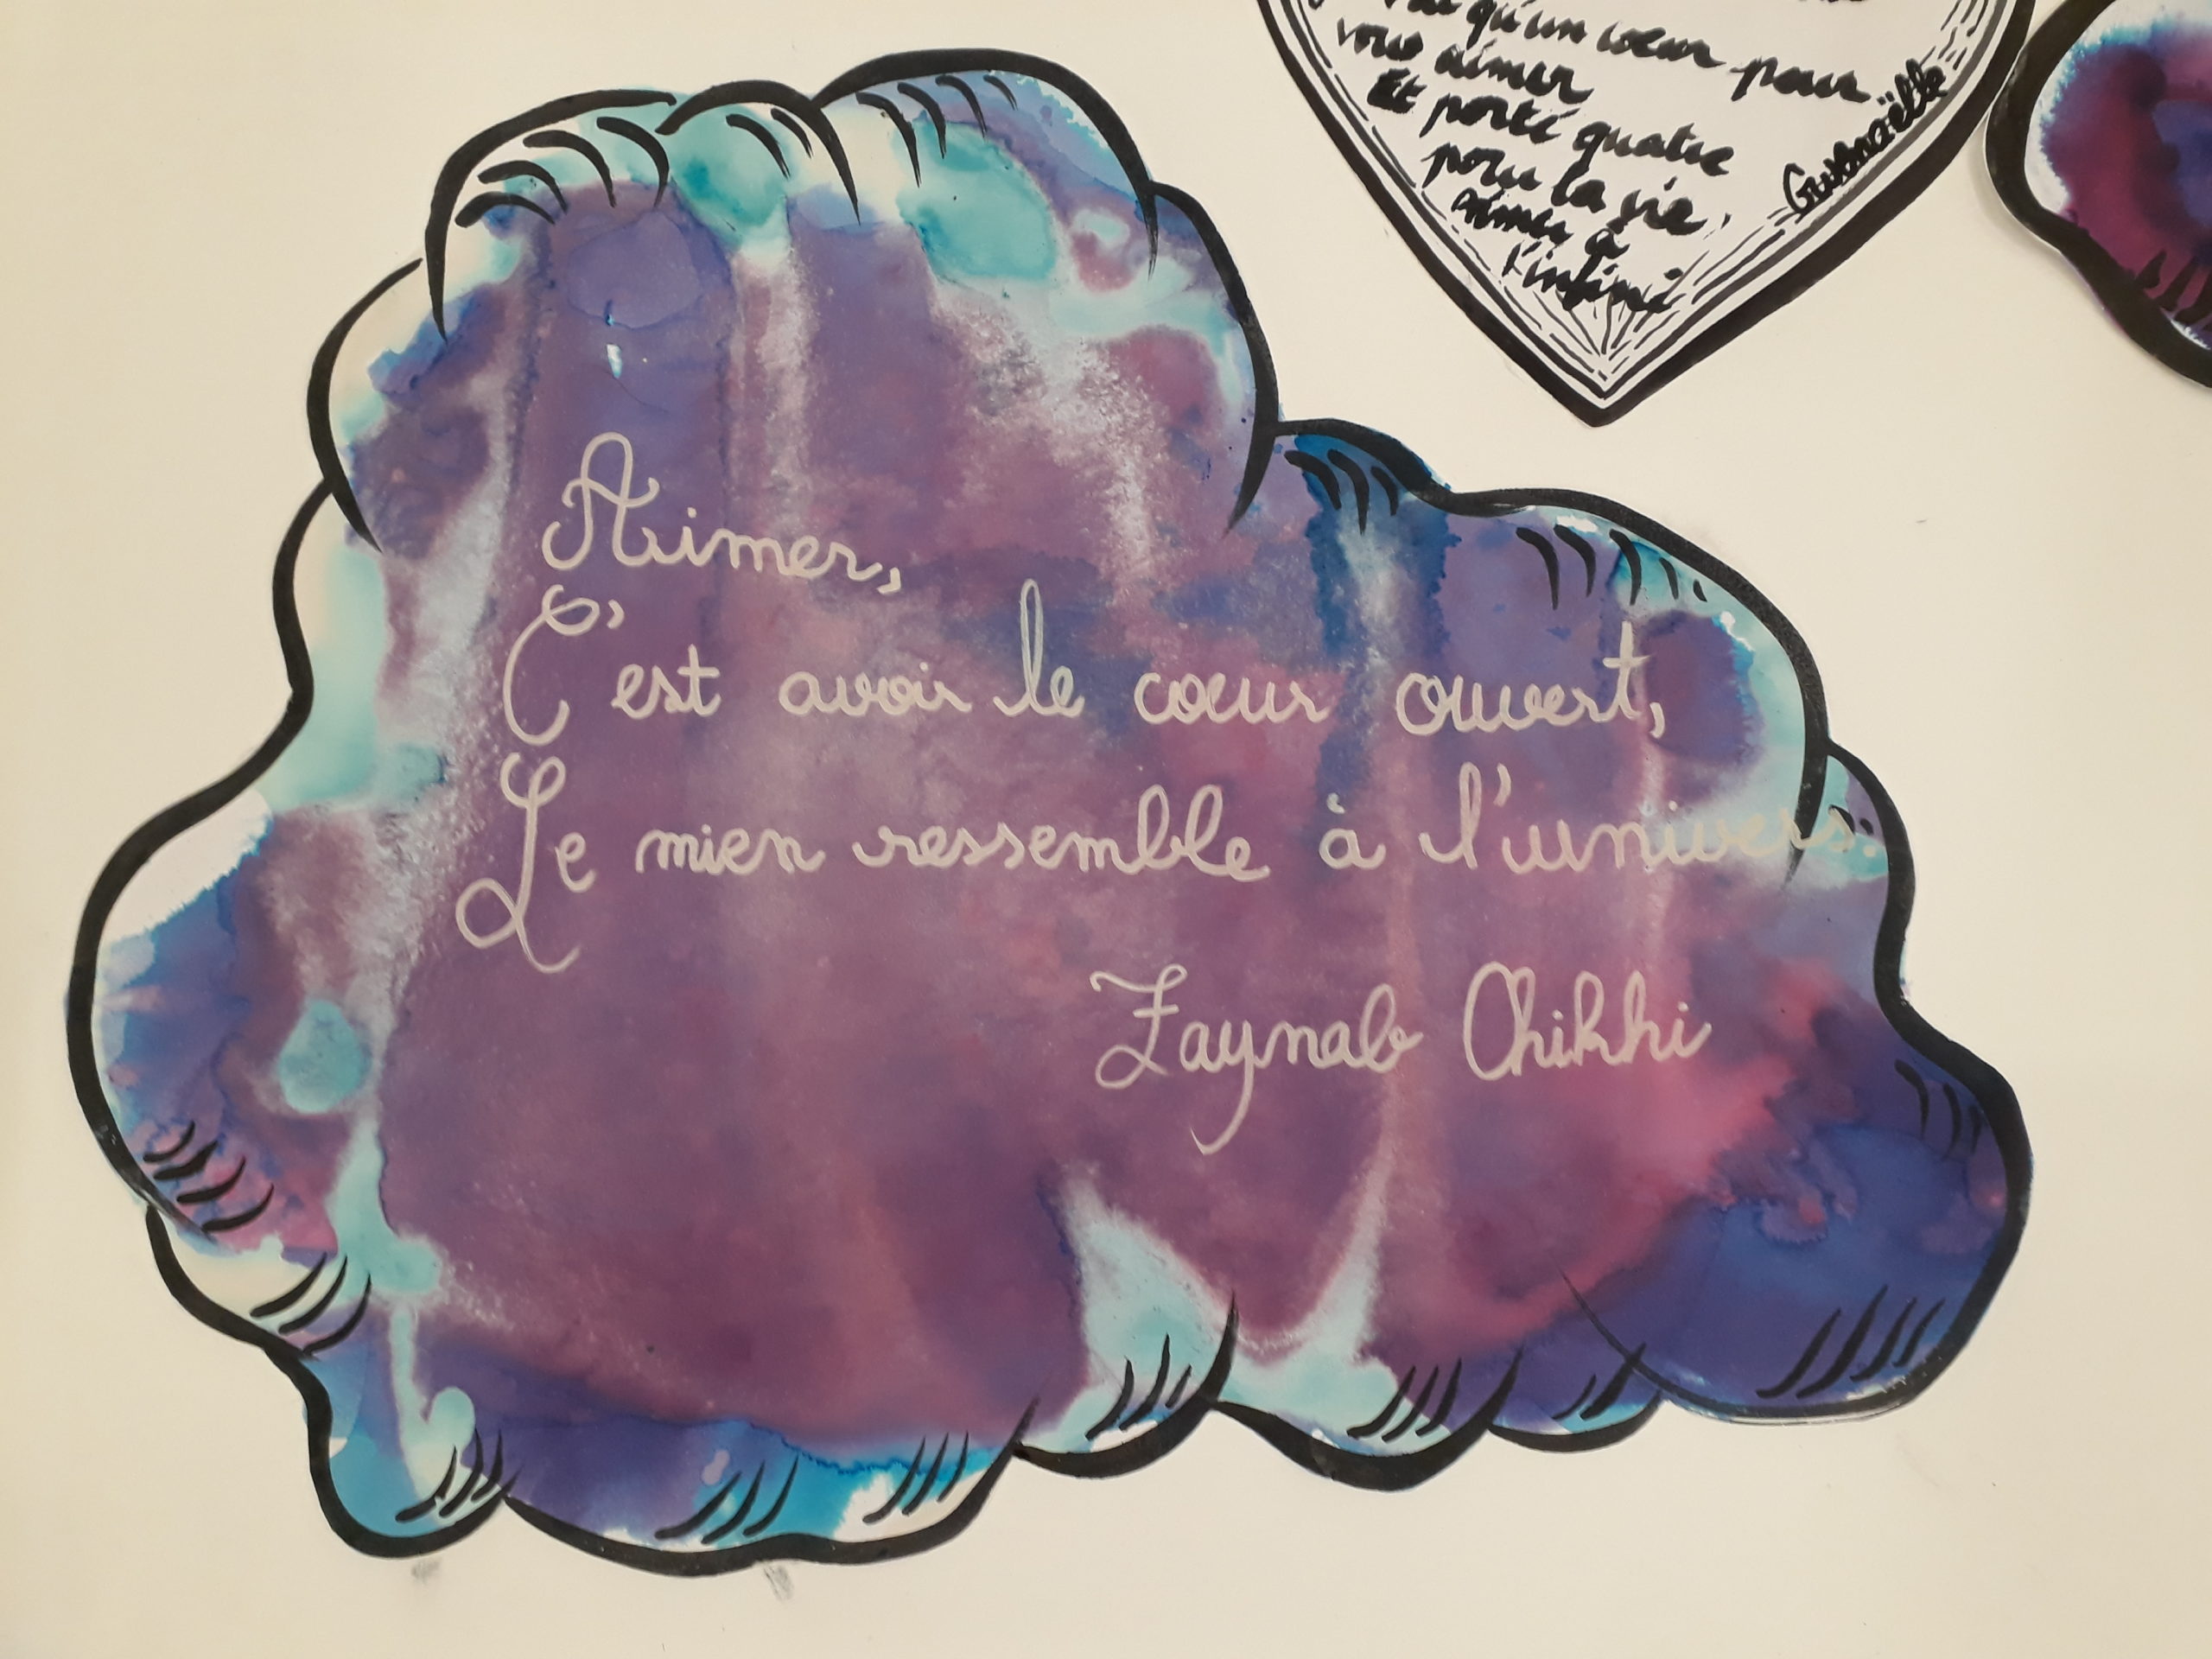 qu'un coeur pour
vous aimer
Et porté quatre
pour la vie,
aimer à
l'infini
Aimer,
C'est avoir le coeur ouvert,
Le mien ressemble à l'univers.
Zaynab Chikhi